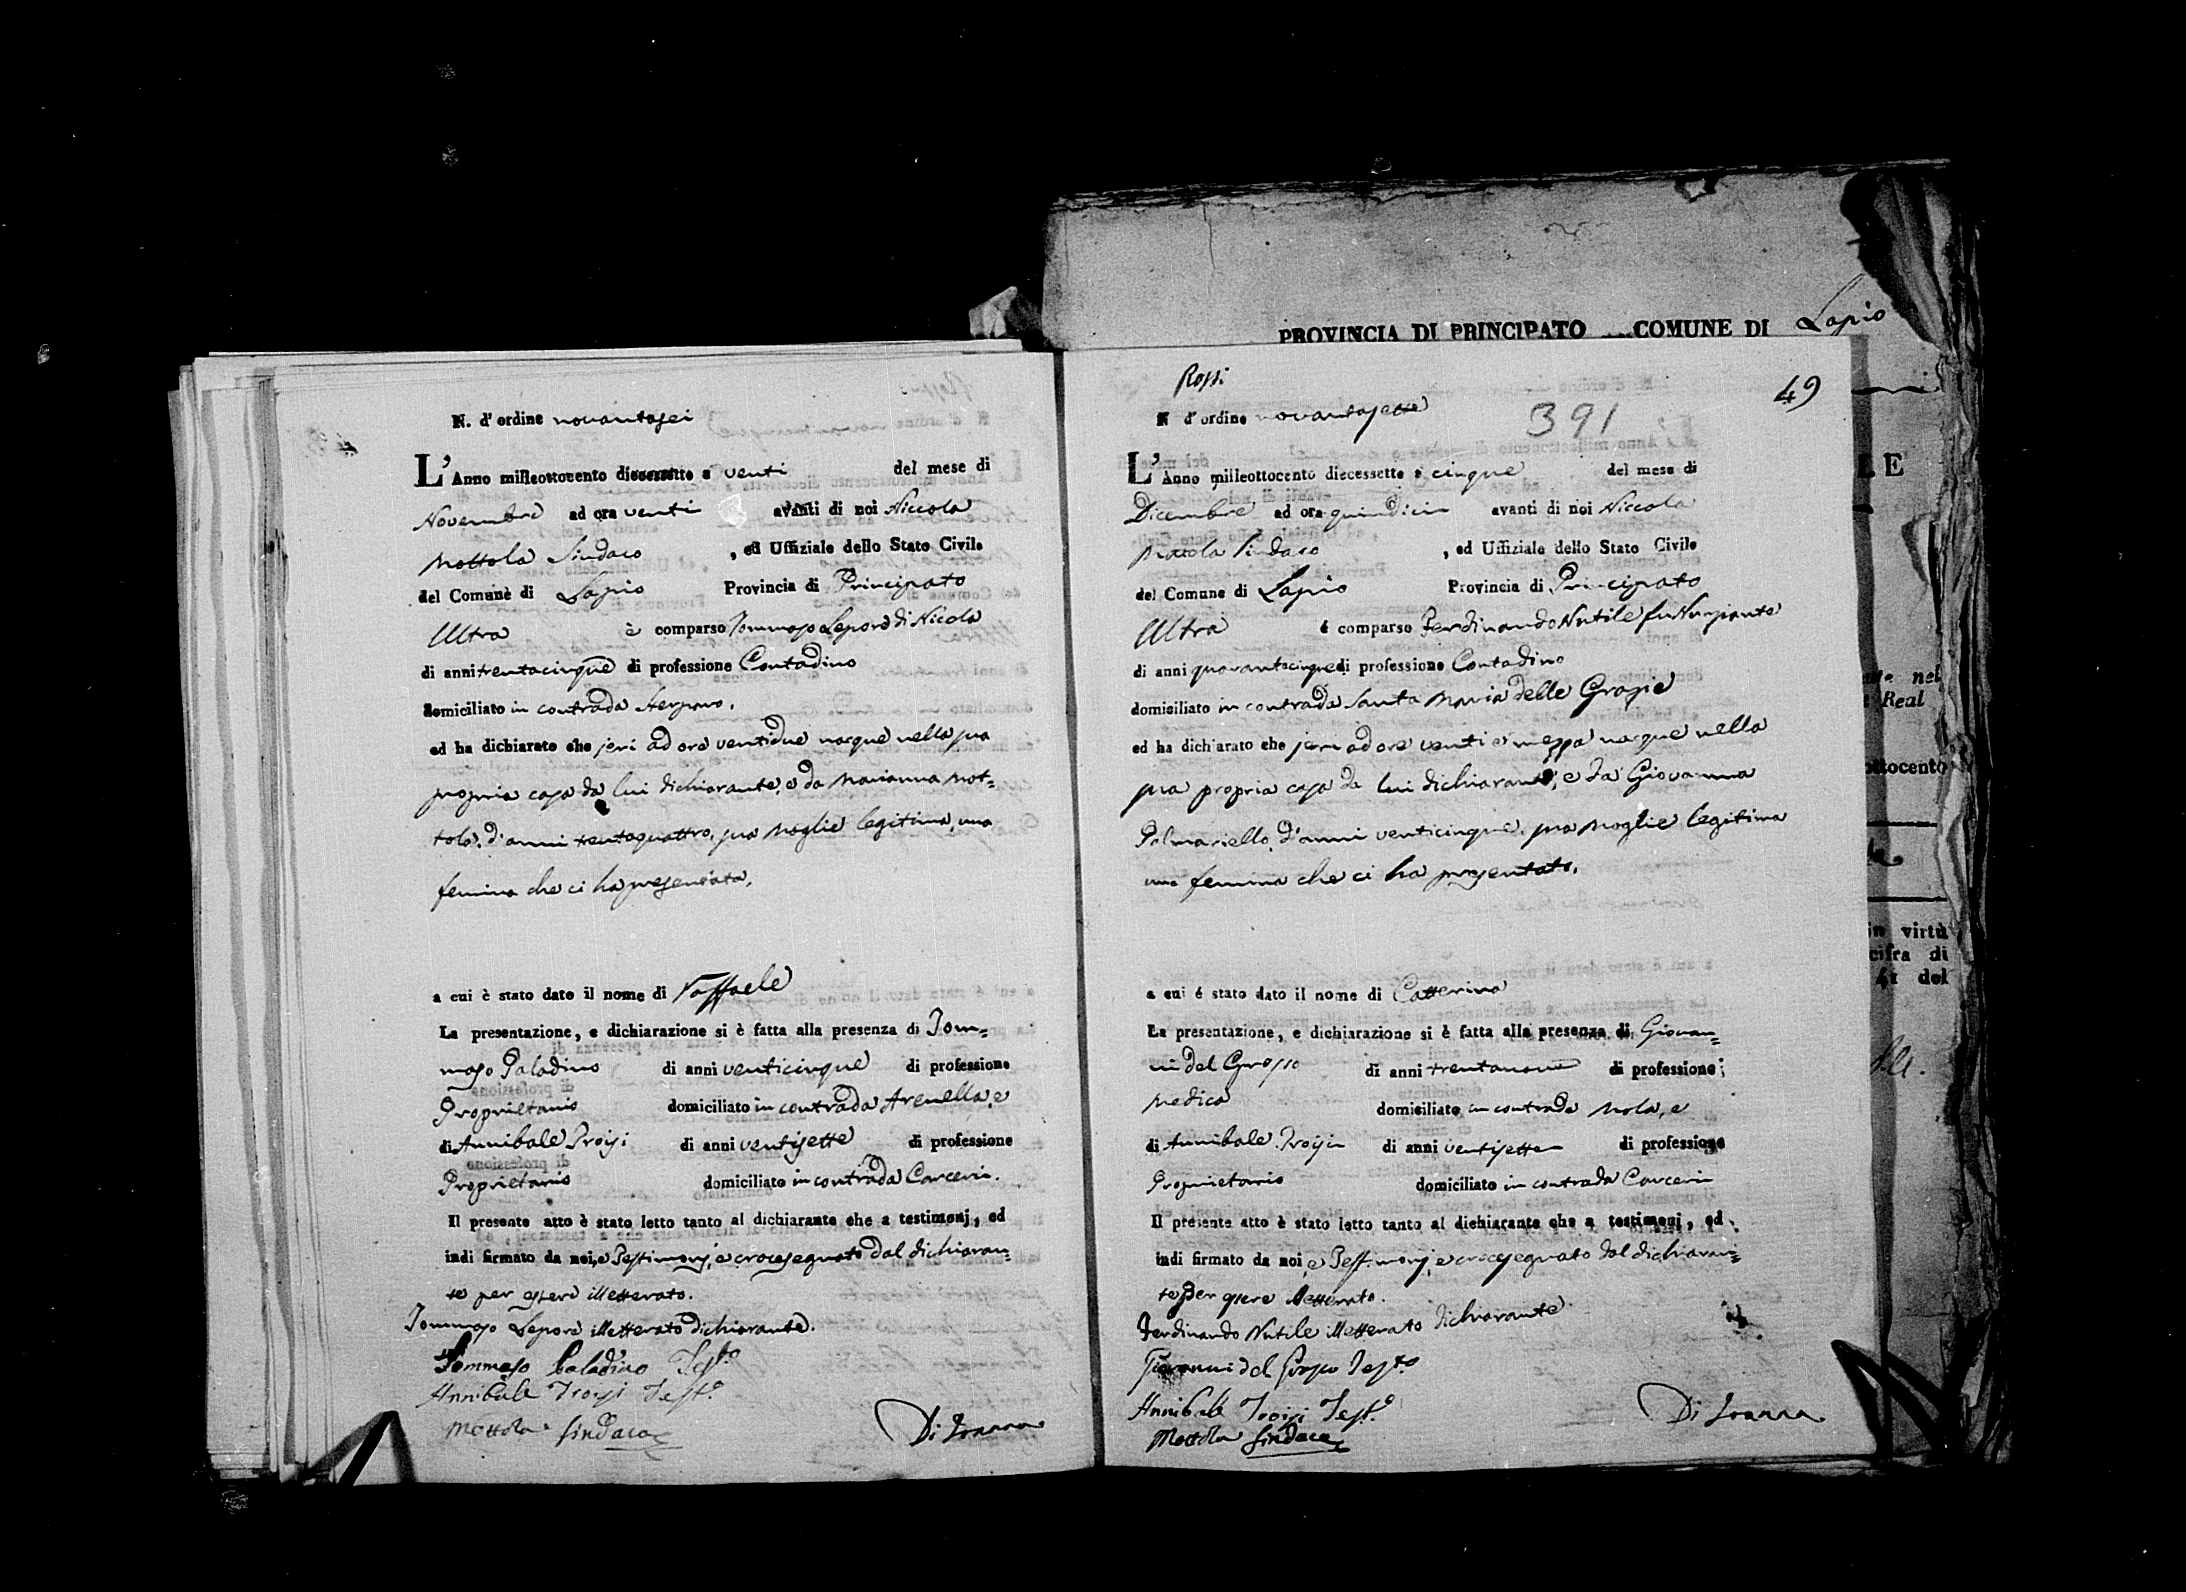 PROVINCIA DI PRINCIPATO COMUNE DI Lapio
N. d'ordine novantasei
L'Anno milleottocento diecessette a venti del mese di
Novembre ad ora venti avanti di noi Niccola
Mottola Sindaco , ed Uffiziale dello Stato Civile
del Comune di Lapio Provincia di Principato
Ultra è comparso Tommaso Lepore di Nicola
di anni trentacinque di professione Contadino
domiciliato in contrada
ed ha dichiarato che jeri ad ore ventidue nacque nella sua
propria casa da lui dichiarante, e da Marianna Mot=
tola, d'anni trentaquattro, sua moglie legitima, una
femina che ci ha presentata,
a cui è stato dato il nome di Raffaele
La presentazione, e dichiarazione si è fatta alla presenza di Tom=
maso Paladino di anni venticinque di professione
Proprietario domiciliato in contrada Arenella, e
di Annibale Troisi di anni ventisette di professione
Proprietario domiciliato in contrada Carceri.
Il presente atto è stato letto tanto al dichiarante che a testimonj, ed
indi firmato da noi, e Testimonj, e crocesegnato dal dichiaran=
te per essere illetterato.
Tommaso Lepore illetterato dichiarante.
Tommaso Paladino Testo
Annibale Troisi Testo
Mottola Sindaco
Di Ioanna
Rossi
49
N d'ordine novantasette
391
L'Anno milleottocento diecessette a cinque del mese di
Dicembre ad ora quindici avanti di noi Niccola
Mottola Sindaco , ed Uffiziale dello Stato Civile
del Comune di Lapio Provincia di Principato
Ultra é comparso Ferdinando Nutile fu Nunziante
di anni quarantacinque di professione Contadino
domisiliato in contrada Santa Maria delle Grazie
ed ha dichiarato che jeri ad ore venti e mezza nacque nella
sua propria casa da lui dichiarante, e da Giovanna
Palmariello, d'anni venticinque, sua moglie legitima
una femina che ci ha presentato,
a cui é stato dato il nome di Catterina
La presentazione, e dichiarazione si è fatta alla presenza di Giovan=
ni del Grosso di anni trentanove di professione
Medico domisiliato in contrada Mola, e
di Annibale Troisi di anni ventisette di professione
Proprietario domiciliato in contrada Carceri
Il presente atto è stato letto tanto al dichiarante che a testimonj, ed
indi firmato da noi, e Testimonj, e crocesegnato dal dichiaran=
te per essere illetterato.
Ferdinando Nutile illetterato dichiarante
Giovanni del Grosso Testo
Annibale Troisi Testo
Mottola Sindaco
Di Ioanna
LE
nel
Real
ottocento
in virtù
cifra di
41 del